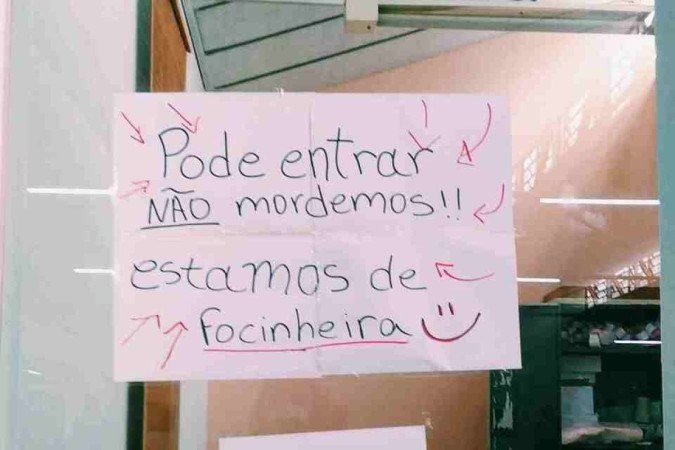 Pode entrar
NÃO mordemos!!
estamos de
focinheira